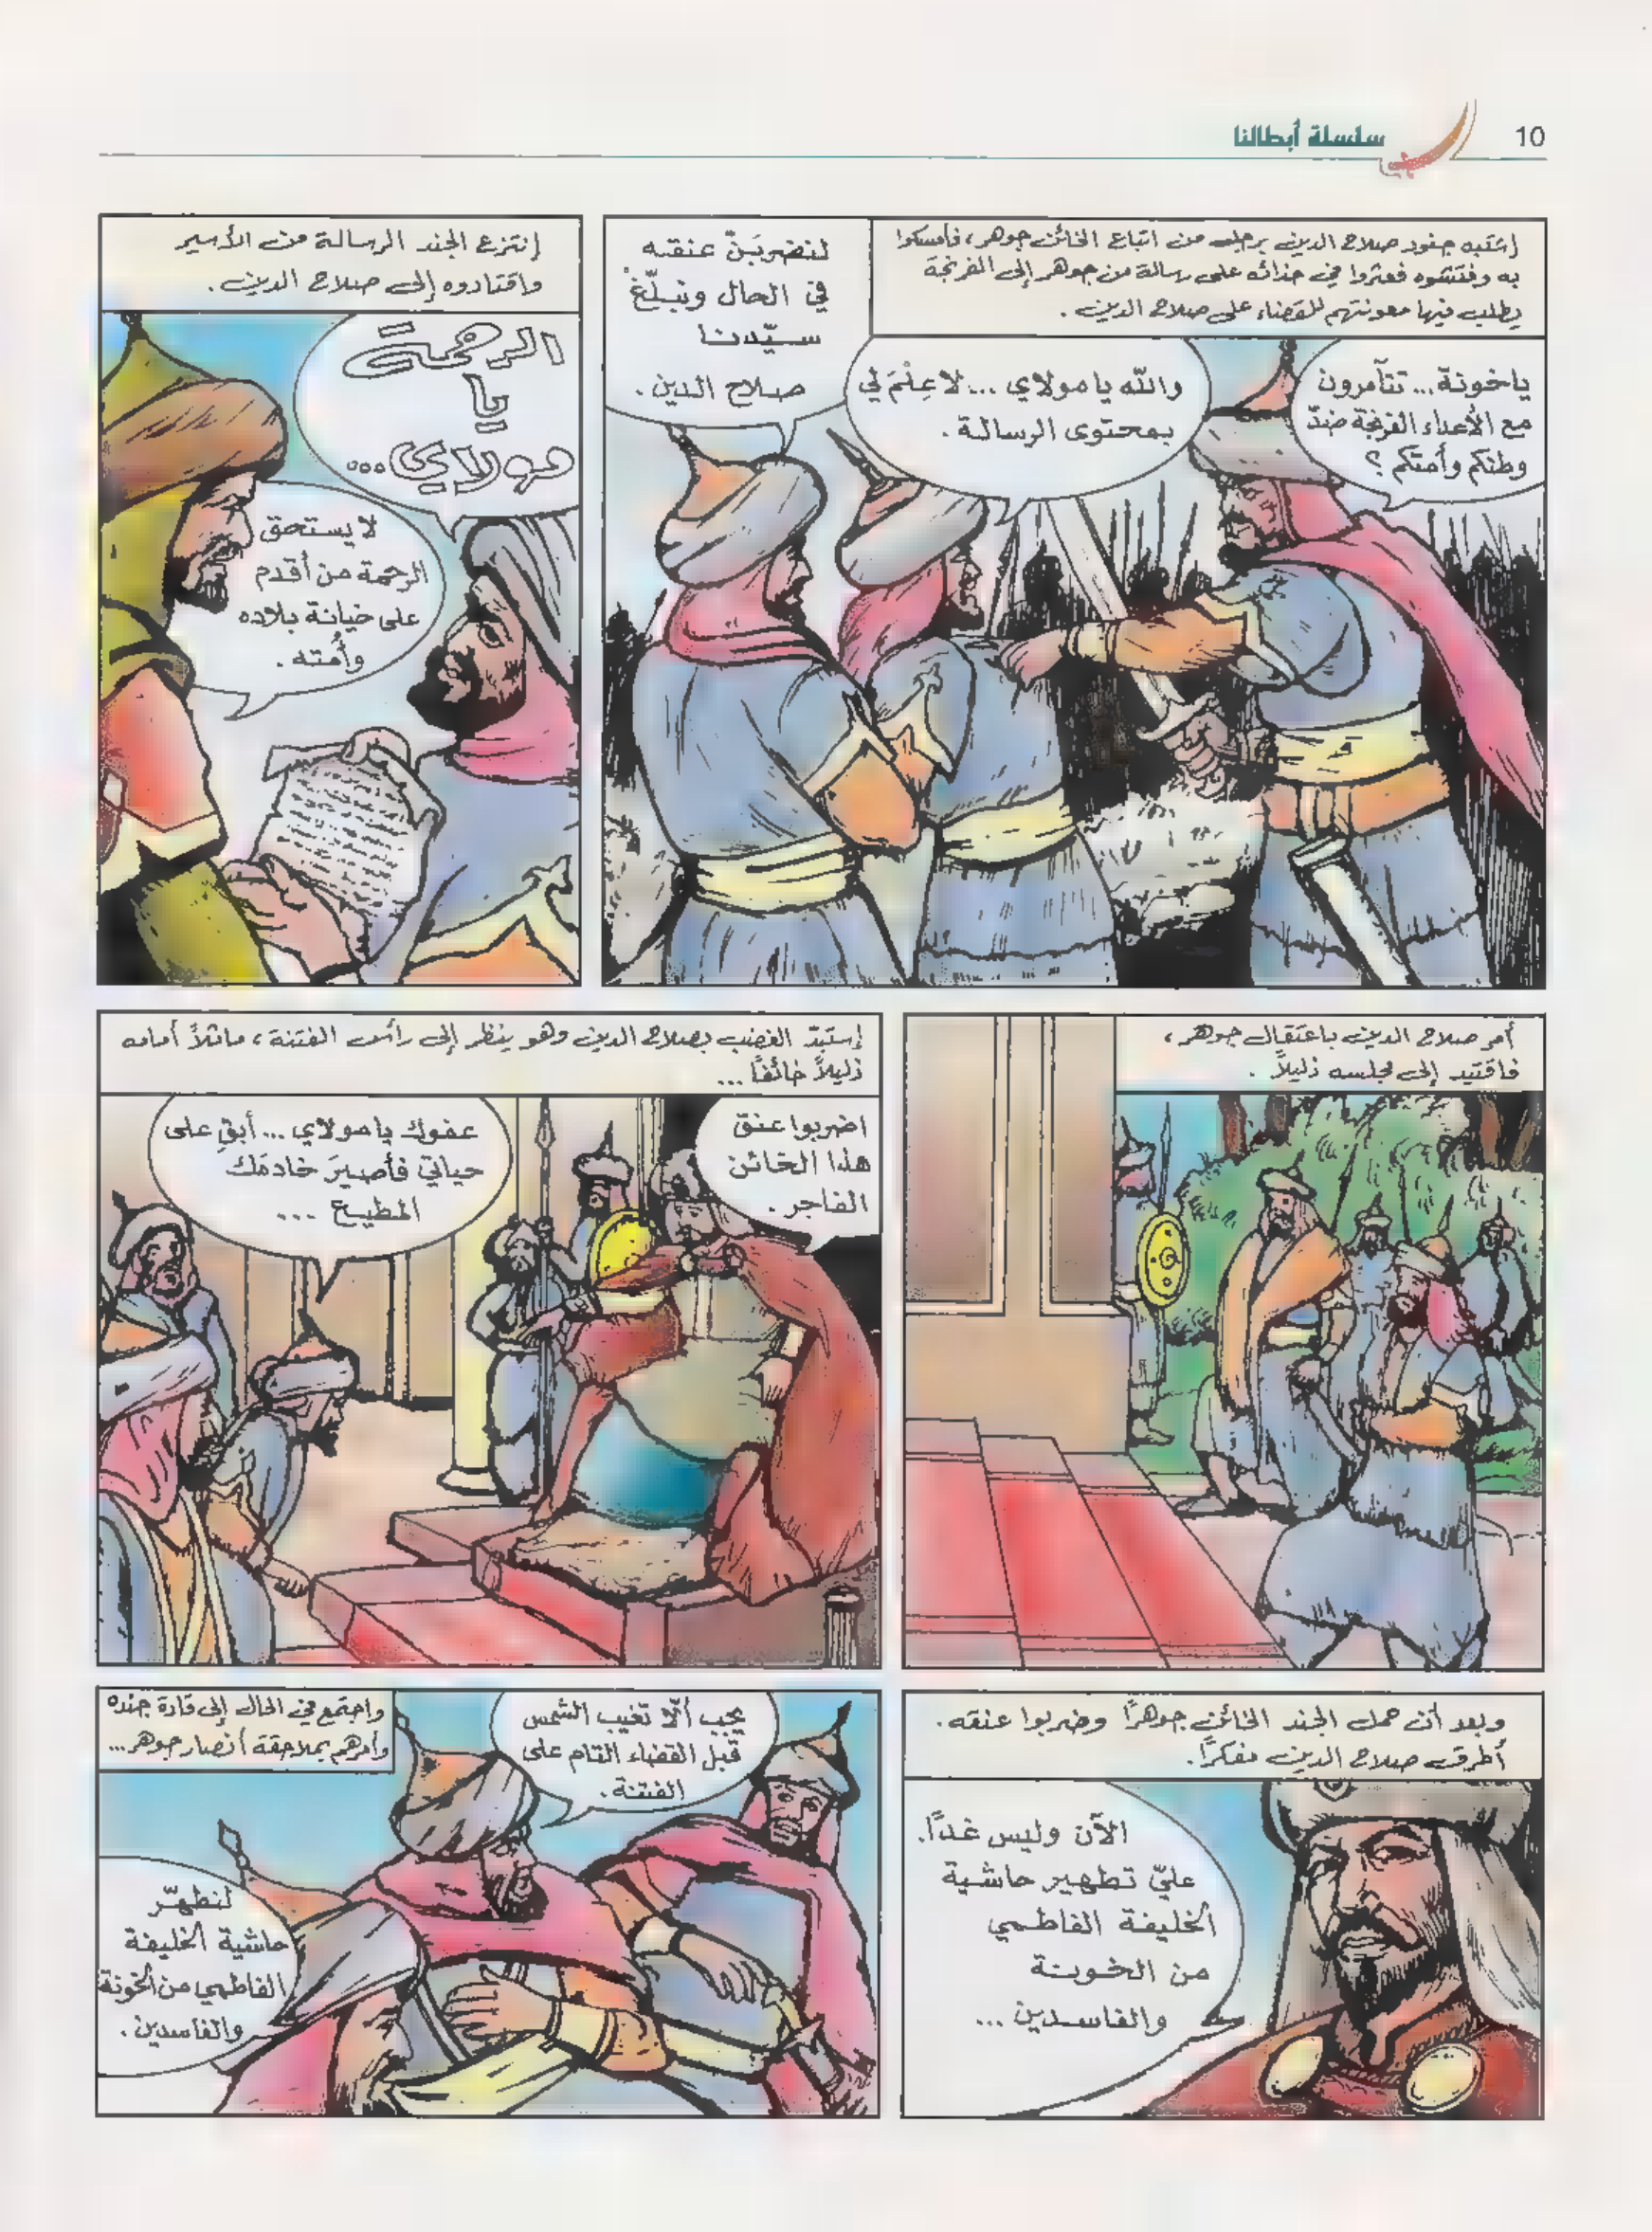 10
سلسلة أبطالنا
إشتبه جنود صلاح الدين برجل من اتباع الخائن جوهر، فأمسكوا
به وفتشوه فعثروا في حذائه على رسالة من جوهر إلى الفرنجة
يطلب فيها معونتهم للقضاء على صلاح الدين.
ياخونة... تتآمرون
مع الأعداء الفرنجة ضدّ
وطنكم وأمتكم؟
والله يا مولاي... لا عِلْمَ لي
بمحتوى الرسالة.
لنضربَنّ عنقه
في الحال ونبلّغْ
سيّدنا
صلاح الدين.
إنتزع الجند الرسالة من الأسير
واقتادوه إلى صلاح الدين.
الرحمة
يا
مولاي...
لا يستحق
الرحمة من أقدم
على خيانة بلاده
وأُمته.
أمر صلاح الدين باعتقال جوهر،
فاقتيد إلى مجلسه ذليلاً.
إستبدّ الغضب بصلاح الدين وهو ينظر إلى رأس الفتنة، ماثلاً أمامه
ذليلاً خائفاً...
اضربوا عنق
هذا الخائن
الفاجر.
عفوك يا مولاي... أبقِ على
حياتي فأصيرَ خادمَك
المطيع...
وبعد أن حمل الجند الخائن جوهراً وضربوا عنقه.
أطرق صلاح الدين مفكراً.
الآن وليس غداً.
عليّ تطهير حاشية
الخليفة الفاطمي
من الخونة
والفاسدين...
واجتمع في الحال إلى قادة جنده
وأمرهم بملاحقة أنصار جوهر...
يجب ألّا تغيب الشمس
قبل القضاء التام على
الفتنة.
لنطهّر
حاشية الخليفة
الفاطمي من الخونة
والفاسدين.